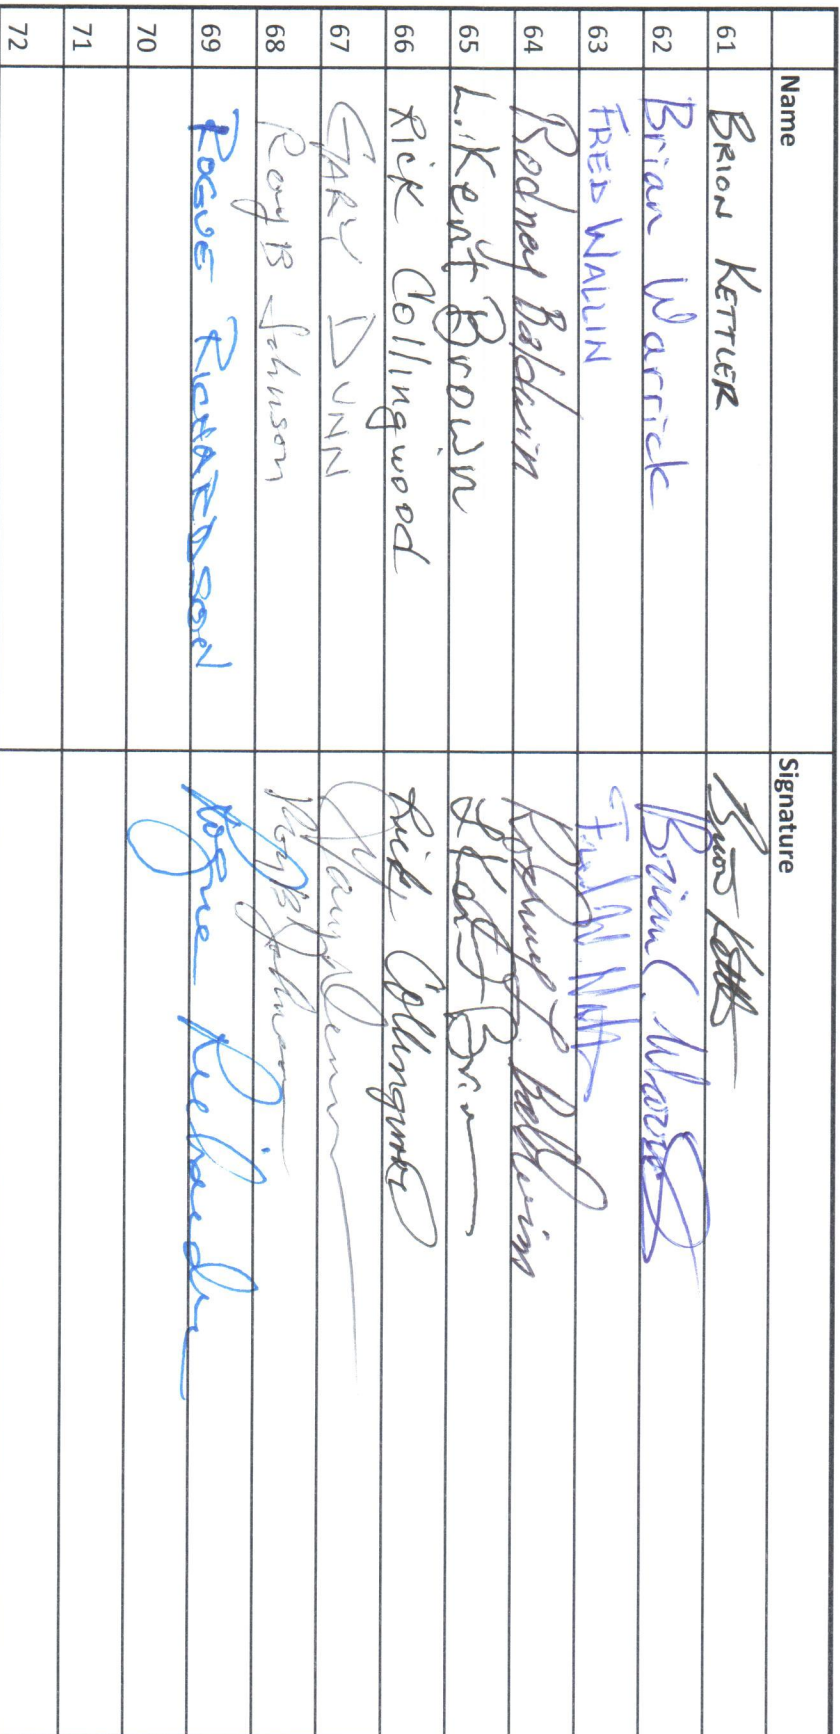 Name Signature
61 BRION KETTLER
62 Brian Warrick Brian C. Warrick
63 FRED WALLIN
64 Rodney Baldwin Rodney L. Baldwin
65 L. Kent Brown L Kent Brown
66 Rick Collingwood Rick Collingwood
67 GARY DUNN Gary Dunn
68 Roy B Johnson Roy B Johnson
69 ROGUE RICHARDSON Rogue Richardson
70
71
72